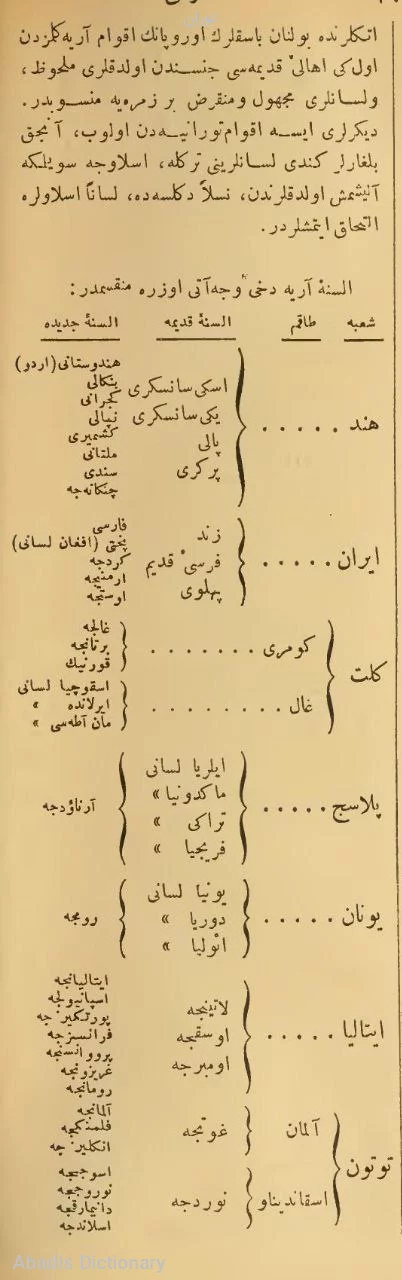 اتكلرنده بولنان باسقلرك اوروپانك اقوام آريه كلمزدن
اول كى اهالئ قديمه سى جنسندن اولدقلرى ملحوظ،
ولسانلرى مجهول ومنقرض بر زمره يه منسوبدر.
ديكرلرى ايسه اقوام تورانيه دن اولوب، آنجق
بلغارلر كندى لسانلرينى تركله، اسلاوجه سويلمكه
آليشمش اولدقلرندن، نسلاً دكلسه ده، لساناً اسلاولره
التحاق ايتمشلردر.
السنۀ آريه دخى وجه آتى اوزره منقسمدر:
شعبه طاقم السنۀ قديمه السنۀ جديده
هند . . . . . اسكى سانسكرى يكى سانسكرى پالى پركرى
هندوستانى (اردو)
بنكالى
كجراتى
نپالى
كشميرى
ملتانى
سندى
چنكانه جه
ايران . . . . . زند فرسئ قديم پهلوى
فارسى
پختى (افغان لسانى)
كردجه
ارمنيجه
اوستجه
كلت
كومرى . . . . . . .
غالجه
برتانجه
قورنيك
غال . . . . . . . .
اسقوچيا لسانى
ايرلانده »
مان آطه سى »
پلاسج . . . . .
ايلريا لسانى
ماكدونيا »
تراكى »
فريجيا »
آرناؤدجه
يونان . . . . .
يونيا لسانى
دوريا »
ائوليا »
رومجه
ايتاليا . . . . .
لاتينجه
اوسقجه
اومبرجه
ايتاليانجه
اسپانيولجه
پورتكيزجه
فرانسزجه
پرووانسنجه
غريزونجه
رومانجه
توتون
آلمان غوتجه
آلمانجه
فلمنكجه
انكليزجه
اسقانديناو نوردجه
اسوجيجه
نوروجيجه
دانيمارقجه
اسلاندجه
Abadis Dictionary